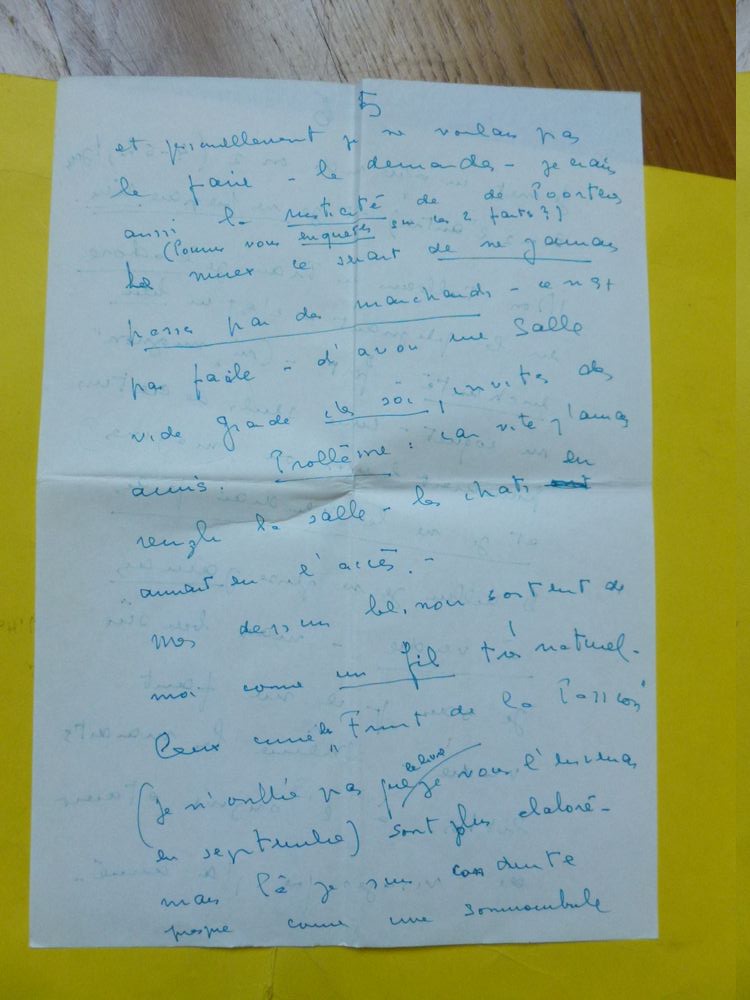 5
et personellement je ne voulais pas
le faire - le demander - je crains
aussi la rusticité de de Poorter
(Pouvez vous enquêter sur les 2 faits ?)
Le mieux ce serait de ne jamais
passer par des marchands - ce n'est
pas facile - d'avoir une Salle
vide grande chez soi, invitez des
amis. Problème : car vite j'aurais
rempli la salle - les chats en
auraient eu l'accès. -
Mes dessins bl, noir sortent de
moi comme un fil très naturel.
Ceux "Fruit de la Passion"
(je n'oublie pas que je vous l'enverrai
en septembre) sont plus élaboré -
mais là je suis conduite
presque comme une somnambule